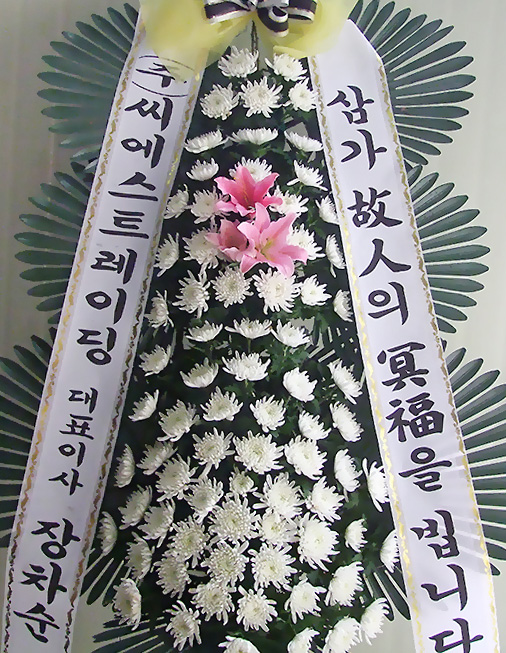 ㈜씨에스트레이딩 대표이사 장차순
삼가 故人의 冥福을 빕니다